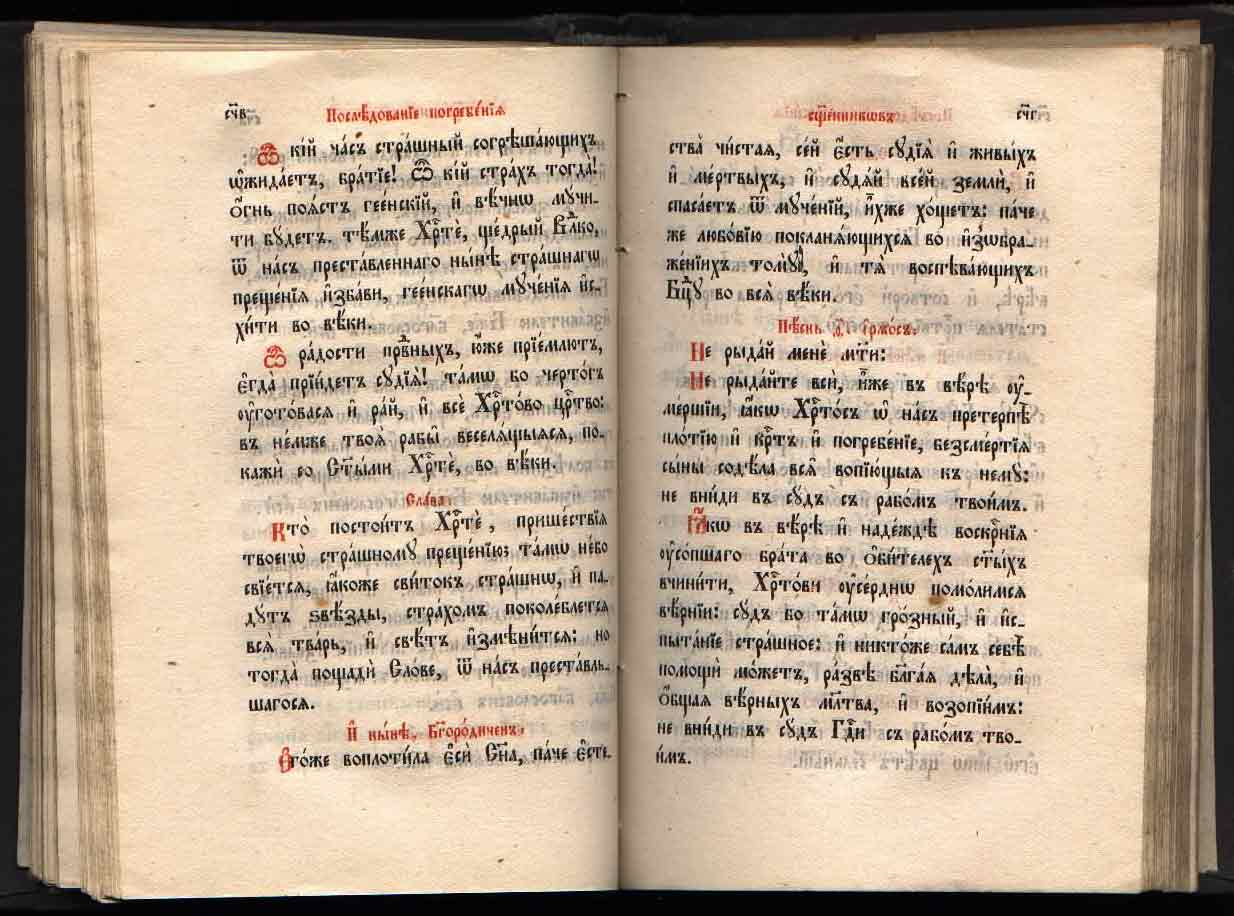 сч҃в
Послѣ́дованїе погребе́нїѧ
Ѽ кі́й ча́съ стра́шный согрѣша́ющихъ
ѡ҆жида́етъ, бра́тїе! Ѽ кі́й стра́хъ тогда̀!
ѻ҆́гнь поѧ́стъ гее́нскїй, и҆ вѣ́чнѡ мꙋ́чи-
ти бꙋ́детъ. тѣ́мже Хрⷭ҇тѐ, ще́дрый Влⷣко,
ѿ на́съ преста́вленнаго ны́нѣ стра́шнагѡ
преще́нїѧ и҆зба́ви, гее́нскагѡ мꙋче́нїѧ и҆с-
хи́ти во вѣ́ки.
Ѽ ра́дости првⷣныхъ, ю҆́же прїе́млютъ,
є҆гда̀ прїи́детъ сꙋдїѧ̀! та́мѡ бо черто́гъ
ᲂу҆гото́васѧ и҆ ра́й, и҆ всѐ Хрⷭ҇то́во црⷭ҇тво:
въ не́мже твоѧ̑ рабы̑ веселѧ́щыѧсѧ, по-
кажѝ со Ст҃ы́ми Хрⷭ҇тѐ, во вѣ́ки.
Сла́ва:
Кто̀ постои́тъ Хрⷭ҇тѐ, прише́ствїѧ
твоегѡ̀ стра́шномꙋ преще́нїю; та́мѡ не́бо
свїе́тсѧ, ꙗ҆́коже сви́токъ стра́шнѡ, и҆ па-
дꙋ́тъ ѕвѣ́зды, стра́хомъ поколе́блетсѧ
всѧ̀ тва́рь, и҆ свѣ́тъ и҆змѣни́тсѧ: но
тогда̀ пощадѝ Сло́ве, ѿ на́съ преста́вль-
шагосѧ.
И҆ ны́нѣ, Бг҃оро́диченъ:
Є҆го́же воплоти́ла є҆сѝ Сн҃а, па́че є҆сте-
сщ҃е́нникѡвъ
сч҃г
ства̀ чи́стаѧ, се́й є҆́сть сꙋдїѧ̀ и҆ живы́хъ
и҆ ме́ртвыхъ, и҆ сꙋдѧ́й все́й землѝ, и҆
спаса́етъ ѿ мꙋче́нїй, и҆̀хже хо́щетъ: па́че
же любо́вїю покланѧ́ющихсѧ во и҆зѡбра-
же́нїихъ томꙋ̀, и҆ тѧ̀ воспѣва́ющихъ
Бцⷣꙋ во всѧ̑ вѣ́ки.
Пѣ́снь ѳ҃. І҆рмо́съ:
Не рыда́й менѐ мт҃и:
Не рыда́йте всѝ, и҆̀же въ вѣ́рѣ ᲂу҆-
ме́ршїи, ꙗ҆́кѡ Хрⷭ҇то́съ ѡ҆ на́съ претерпѣ̀
пло́тїю и҆ крⷭ҇тъ и҆ погребе́нїе, безсме́ртїѧ
сы́ны содѣ́ла всѧ̑ вопїю́щыѧ къ немꙋ̀:
не вни́ди въ сꙋ́дъ съ рабо́мъ твои́мъ.
Ꙗ҆́кѡ въ вѣ́рѣ и҆ наде́ждѣ воскрⷭ҇нїѧ
ᲂу҆со́пшаго бра́та во ѻ҆би́телехъ ст҃ы́хъ
вчини́ти, Хрⷭ҇то́ви ᲂу҆се́рднѡ помо́лимсѧ
вѣ́рнїи: сꙋ́дъ бо та́мѡ гро́зный, и҆ и҆с-
пыта́нїе стра́шное: и҆ никто́же са́мъ себѣ̀
помощѝ мо́жетъ, ра́звѣ бл҃га́ѧ дѣла̀, и҆
ѻ҆́бщаѧ вѣ́рныхъ мл҃тва, и҆ возопїи́мъ:
не вни́ди въ сꙋ́дъ Гдⷭ҇и съ рабо́мъ тво-
и́мъ.